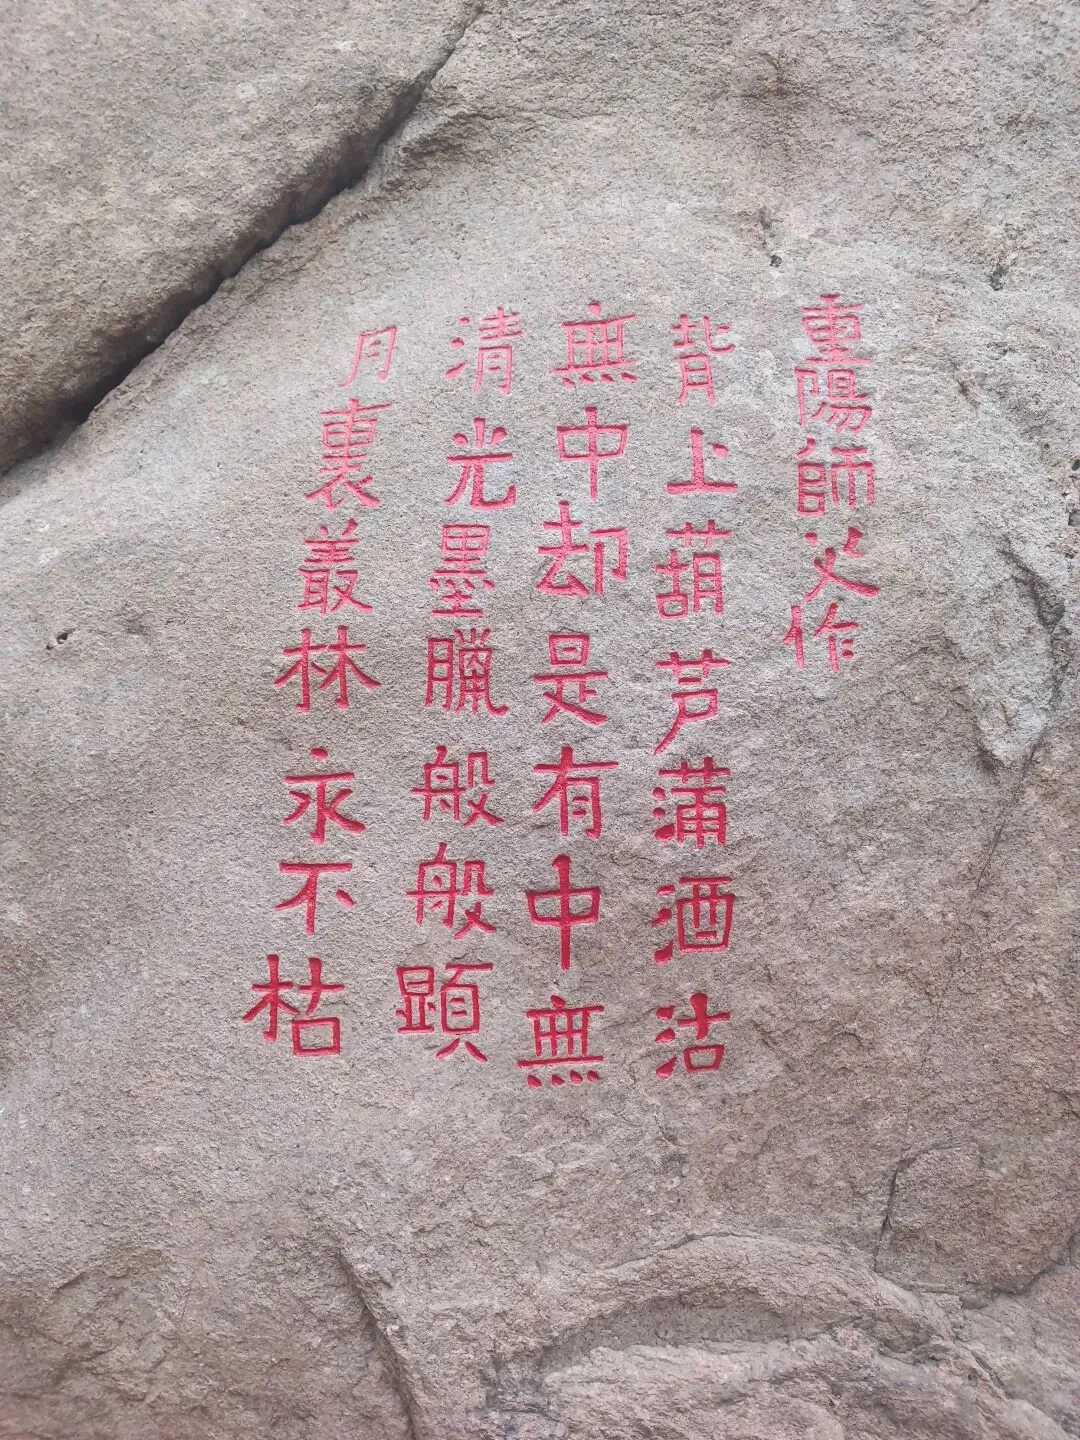 重陽師父作
背上葫芦蒲酒沽
無中却是有中無
清光墨臘般般顕
月裏叢林永不枯